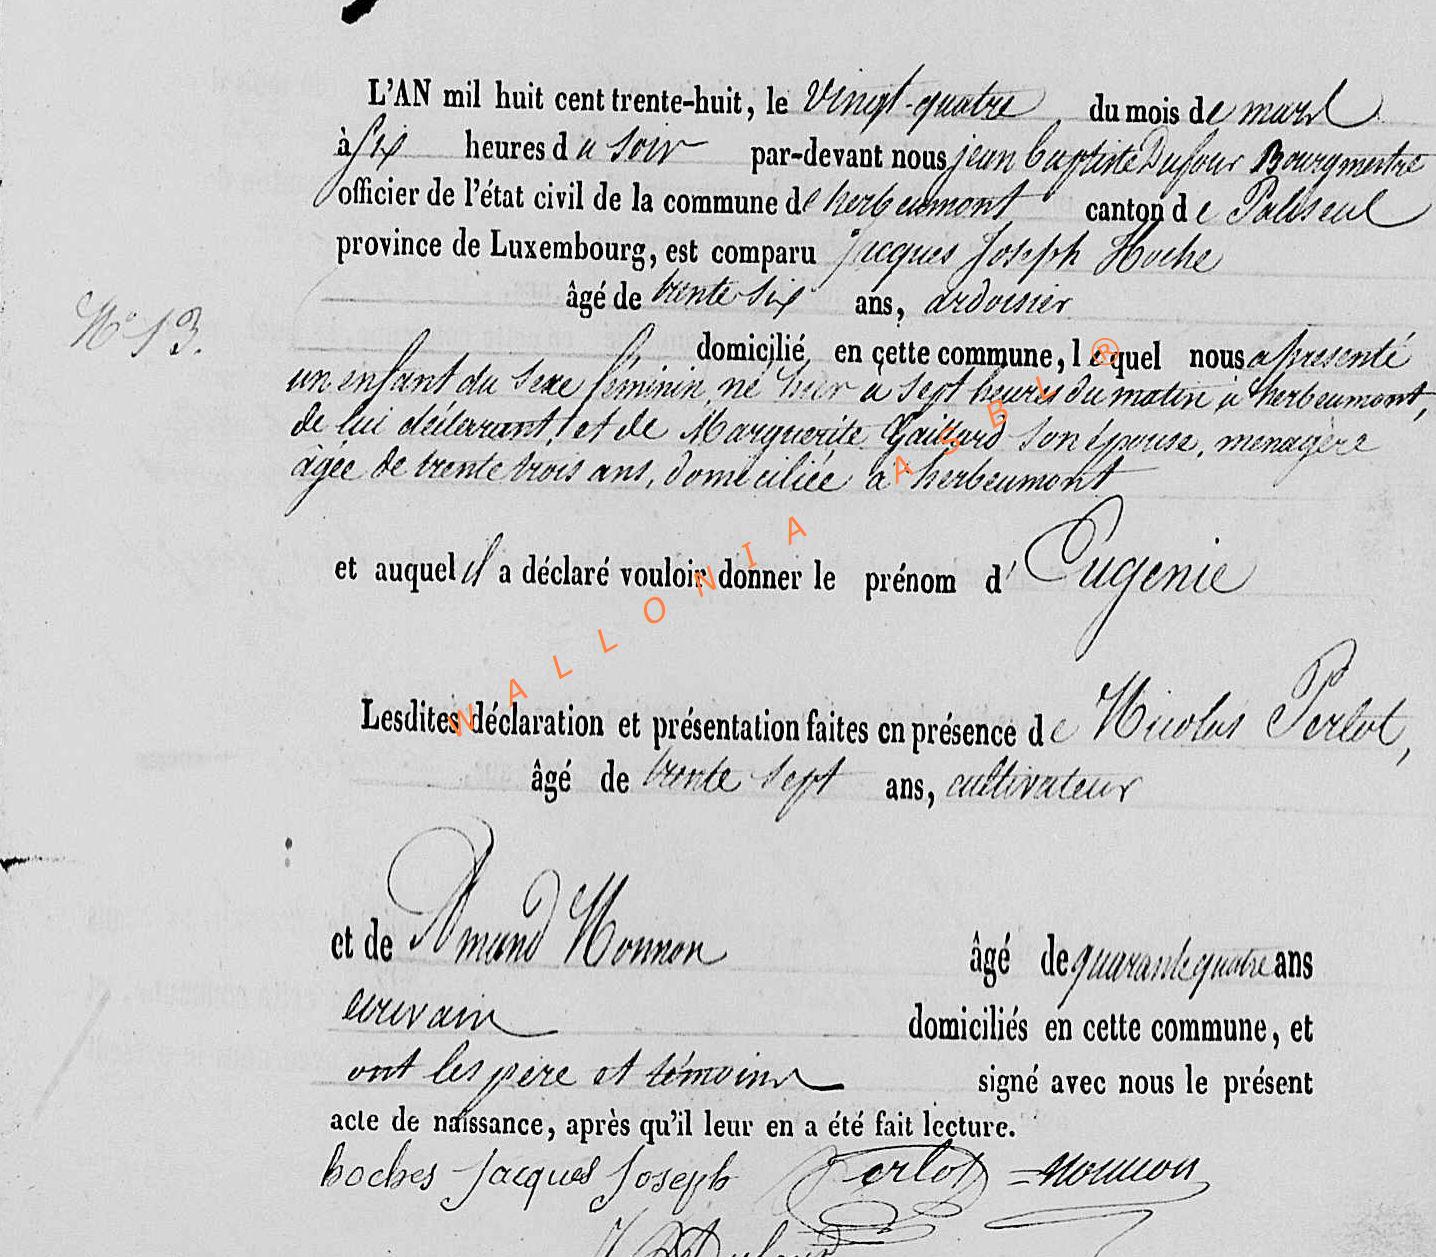 L'AN mil huit cent trente-huit, le vingt-quatre du mois de mars
à six heures du soir par-devant nous jean baptiste Dufour Bourgmestre
officier de l'état civil de la commune de herbeumont canton de Paliseul
province de Luxembourg, est comparu jacques Joseph Hoche
âgé de trente six ans, ardoisier
N° 13.
domicilié en cette commune, lequel nous a présenté
un enfant du sexe féminin, né hier à sept heures du matin à herbeumont,
de lui déclarant, et de Marguerite Gaillard son épouse, menagère
âgée de trente trois ans, domiciliée à herbeumont
et auquel il a déclaré vouloir donner le prénom d'Eugenie
Lesdites déclaration et présentation faites en présence de Nicolas Perlot,
âgé de trente sept ans, cultivateur
et de Amand Monnon âgé de quarante quatre ans
ecrivain domiciliés en cette commune, et
ont les père et témoins signé avec nous le présent
acte de naissance, après qu'il leur en a été fait lecture.
hoches Jacques Joseph Perlot Monnon
WALLONIA ASBL ®